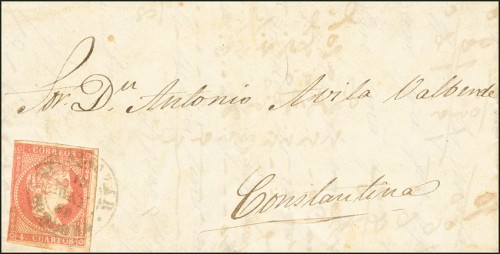 Sor. Dn. Antonio Avila Valberde
Constantina
CORREOS
4 CUARTOS